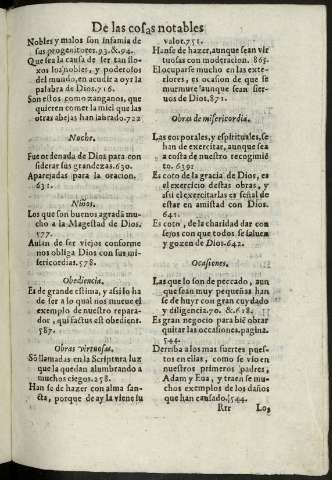 De las cosas notables
Nobles y malos son infamia de
sus progenitores. 93. &. 94.
Que sea la causa de ser tan flo-
xos los nobles, y poderosos
del mundo, en acudir a oyr la
palabra de Dios. 716.
Son estos como zanganos, que
quieren comer la miel que las
otras abejas han labrado. 722
Noche.
Fue ordenada de Dios para con
siderar sus grandezas. 630.
Aparejadas para la oracion.
631.
Niños.
Los que son buenos agradã mu-
cho a la Magestad de Dios.
577.
Auian de ser viejos conforme
nos obliga Dios con sus mi-
sericordias. 578.
Obediencia.
Es de grande estima, y assi lo ha
de ser a lo qual nos mueue el
exemplo de nuestro repara-
dor, qui factus est obedient.
587.
Obras virtuosas.
Sõ llamadas en la Scriptura luz
que la quedan alumbrando a
muchos ciegos. 258.
Han se de hazer con alma san-
cta, porque de ay la viene su
valor. 751.
Hanse de hazer, aunque sean vir
tuosas con moderacion. 865.
El ocuparse mucho en las exte-
riores, es ocasion de que se
murmure aunque sean sier-
uos de Dios. 871.
Obras de misericordia.
Las corporales, y espirituales, se
han de exercitar, aunque sea
a costa de nuestro recogimiẽ
to. 639.
Es coto de la gracia de Dios, es
el exercicio destas obras, y
assi el exercitarlas es señal de
estar en amistad con Dios.
641.
Es coto, de la charidad dar con
sejos con que todos se saluen
y gozen de Dios. 642.
Ocasiones.
Las que lo son de peccado, aun
que sean muy pequeñas han
se de huyr con gran cuydado
y diligencia. 70. &. 618.
Es gran negocio para biẽ obrar
quitar las ocasiones. pagina.
544.
Derriba a los mas fuertes pues-
tos en ellas, como se vio en
nuestros primeros padres,
Adam y Eua, y traen se mu-
chos exemplos de los daños
que han causado. 544.
Rrr Los